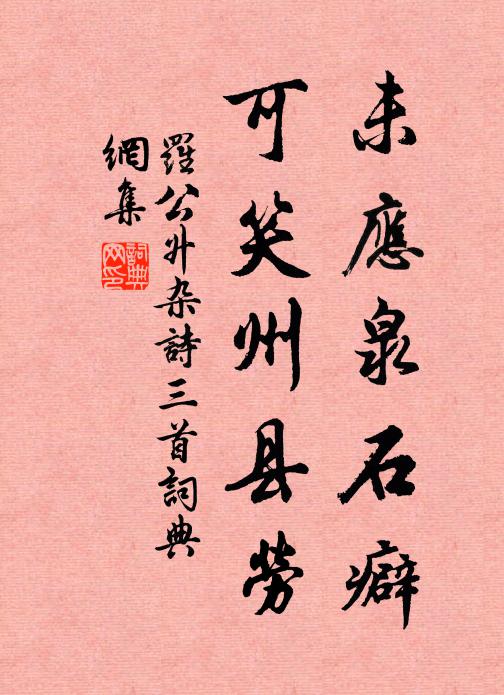 未應泉石癖
可笑州县勞
羅公升杂詩三首詞典
網集
詞典网印